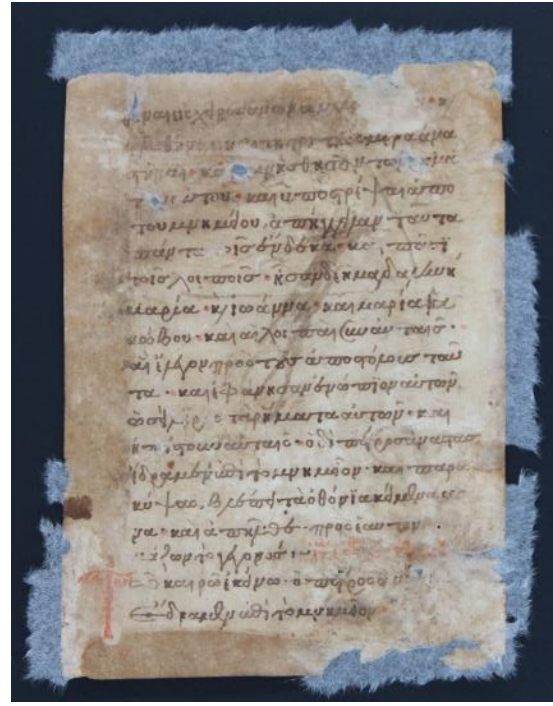 ἡμέρα ἀνα
στῆναι· καὶ ἐμνήσθησαν τῶν ῥημά
των αὐτοῦ· καὶ ὑποστρέψασαι ἀπο
τοῦ μνημείου, ἀπήγγειλαν ταῦτα
πάντα τοῖς ἕνδεκα· καὶ πᾶσι
τοῖς λοιποῖς· ἦσαν δὲ ἡ μαγδαληνὴ
μαρία· κ ἰωάννα· καὶ μαρία ἰα
κώβου· καὶ αἱ λοιπαὶ σὺν αὐταῖς·
αἳ ἔλεγον πρὸς τοὺς ἀποστόλους ταῦ
τα· καὶ ἐφάνησαν ἐνώπιον αὐτῶν
ὡσεὶ λῆρος τὰ ῥήματα αὐτῶν· καὶ
ἠπίστουν αὐταῖς· ὁ δὲ πέτρος ἀναστὰς
ἔδραμεν ἐπὶ τὸ μνημεῖον· καὶ παρα
κύψας, βλέπει τὰ ὀθόνια κείμενα μό
να· καὶ ἀπῆλθε· πρὸς ἑαυτὸν
θαυμάζων τὸ γεγονός
καιρῶ ἐκείνω· ὁ πέτρος
ἔδραμεν ἐπὶ τὸ μνημεῖον